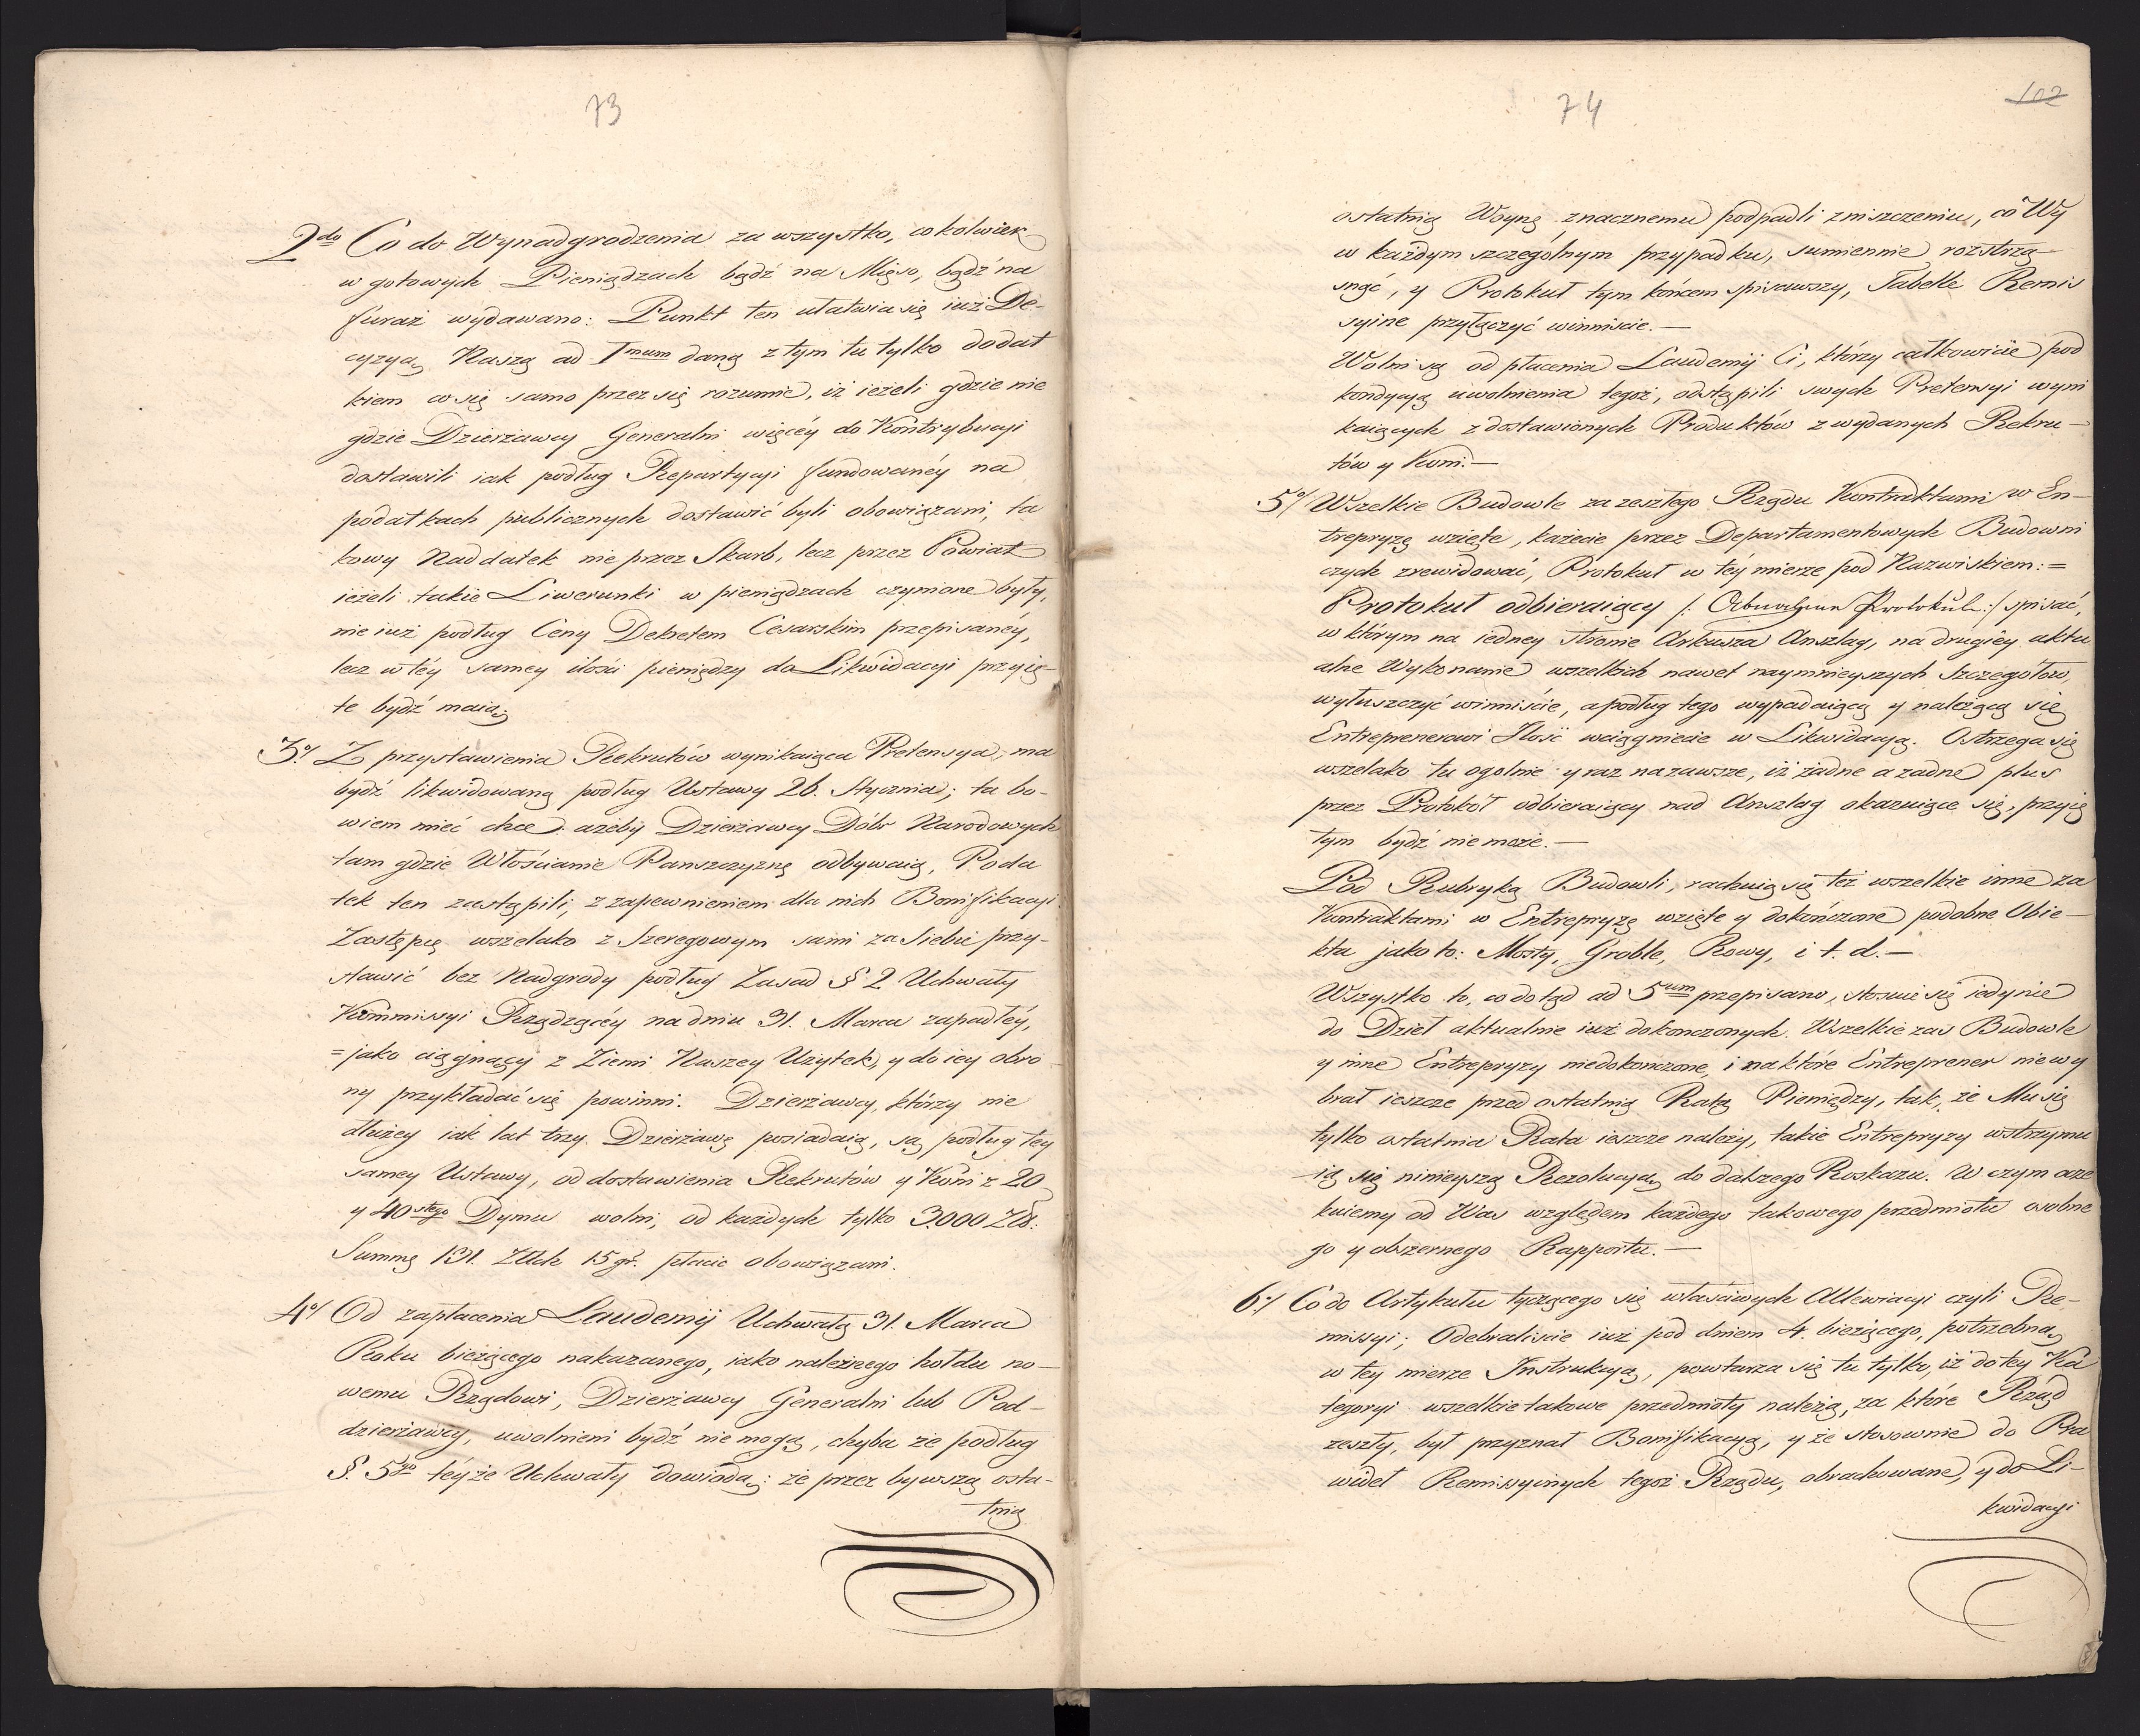 73
2do Co do Wynadgrodzenia za wszystko, cokolwiek
w gotowych Pieniądzach bądź na Mięso, bądź na
furaż wydawano: Punkt ten ułatwia się iuż De-
cyzyą Naszą ad Imum daną z tym tu tylko dodat
kiem co się samo przez się rozumie, iż ieżeli gdzie nie
gdzie Dzierżawcy Generalni więcéy do Kontrybucyi
dostawili iak podług Repartycyi fundowanéy na
podatkach publicznych dostawić byli obowiązani, ta
kowy Naddatek nie przez Skarb, lecz przez Powiat
ieżeli takie Liwerunki w pieniądzach czynione były,
nie iuż podług Ceny Dekretem Cesarskim przepisanéy,
lecz w téy samey ilości pieniędzy do Likwidacyi przyię-
te bydź maią.
3o/ Z przystawienia Rekrutów wynikaiąca Pretensya, ma
bydź likwidowaną podług Ustawy 26. Stycznia; ta bo-
wiem mieć chce: ażeby Dzierżawcy Dóbr Narodowych
tam gdzie Włościanie Panszczyznę odbywaią, Poda
tek ten zastąpili, z zapewnieniem dla nich Bonifikacyi
Zastępcę wszelako z Szeregowym sami za Siebie przy-
stawić bez Nadgrody podług Zasad § 2 Uchwały
Kommissyi Rządzącéy na dniu 31. Marca zapadłéy,
= jako ciągnący z Ziemi Naszey Użytek, y do iey obro
ny przykładać się powinni. Dzierżawcy, którzy nie
dłużey iak lat trzy Dzierżawę posiadaią, są podług tey
samey Ustawy, od dostawienia Rekrutów y Koni z 20
y 40stego Dymu wolni, od każdych tylko 3000 Zł:
Summę 131. Złłch 15 gr. płacić obowiązani.
4o/ Od zapłacenia Laudemij Uchwałą 31. Marca
Roku bieżącego nakazanego, iako należnego hołdu no-
wemu Rządowi, Dzierżawcy Generalni lub Pod-
dzierżawcy, uwolnieni bydź nie mogą, chyba że podług
§. 5go téyże Uchwały dowiodą; że przez bywszą osta-
tnią
74
102
ostatnią Woynę znacznemu podpadli zniszczeniu, co Wy
w każdym szczególnym przypadku, sumiennie roztrzą-
snąć, y Protokuł tym końcem spisawszy, Tabelle Remis
syine przyłączyć winniście.—
Wolni są od płacenia Laudemij Ci, którzy całkowicie pod
kondycyą uwolnienia tegoż, odstąpili swych Pretensyi wyni
kaiących z dostawionych Produktów z wydanych Rekru-
tów y Koni.—
5o/ Wszelkie Budowle za zeszłego Rządu Kontraktami w En-
trepryzę wzięte, każecie przez Departamentowych Budowni
czych zrewidować, Protokuł w téy mierze pod Nazwiskiem: =
Protokuł odbieraiący /: Abnahme Protokull :/ spisać,
w którym na iedney stronie Arkusza Anszlag, na drugiéy aktu
alne Wykonanie wszelkich nawet naymnieyszych Szczegółów,
wyłuszczyć winniście, a podług tego wypadaiącą y należącą się
Entreprenerowi Ilość wciągniecie w Likwidacyą. Ostrzega się
wszelako tu ogolnie y raz na zawsze, iż żadne a żadne plus
przez Protokół odbieraiący nad Anszlag okazuiące się, przyię
tym bydź nie może.—
Pod Rubryką Budowli, rachuią się też wszelkie inne za
Kontraktami w Entrepryzę wzięte y dokończone podobne Obie-
kta jako to: Mosty, Groble, Rowy, i t. d.—
Wszystko to, co dotąd ad 5tum przepisano, stosuie się iedynie
do Dzieł aktualnie iuż dokonczonych. Wszelkie zaś Budowle
y inne Entrepryzy niedokonczone, i na które Entreprener nie wy
brał ieszcze przed ostatnią Ratą Pieniędzy, tak, że Mu się
tylko ostatnia Rata ieszcze należy, takie Entrepryzy wstrzymu
ią się ninieyszą Rezolucyą do dalszego Roskazu. W czym ocze
kuiemy od Was względem każdego takowego przedmiotu osobne
go y obszernego Rapportu.—
6o/ Co do Artykułu tyczącego się właściwych Allewiacyi czyli Re-
missyi; Odebraliście iuż pod dniem 4. bieżącego, potrzebną
w tey mierze Instrukcyą, powtarza się tu tylko, iż do tey Ka
tegoryi wszelkie takowe przedmioty należą, za które Rząd
zeszły, był przyznał Bonifikacyą, y że stosownie do Pra
wideł Remissyinych tegoż Rządu, obrachowane, y do Li-
kwidacyi